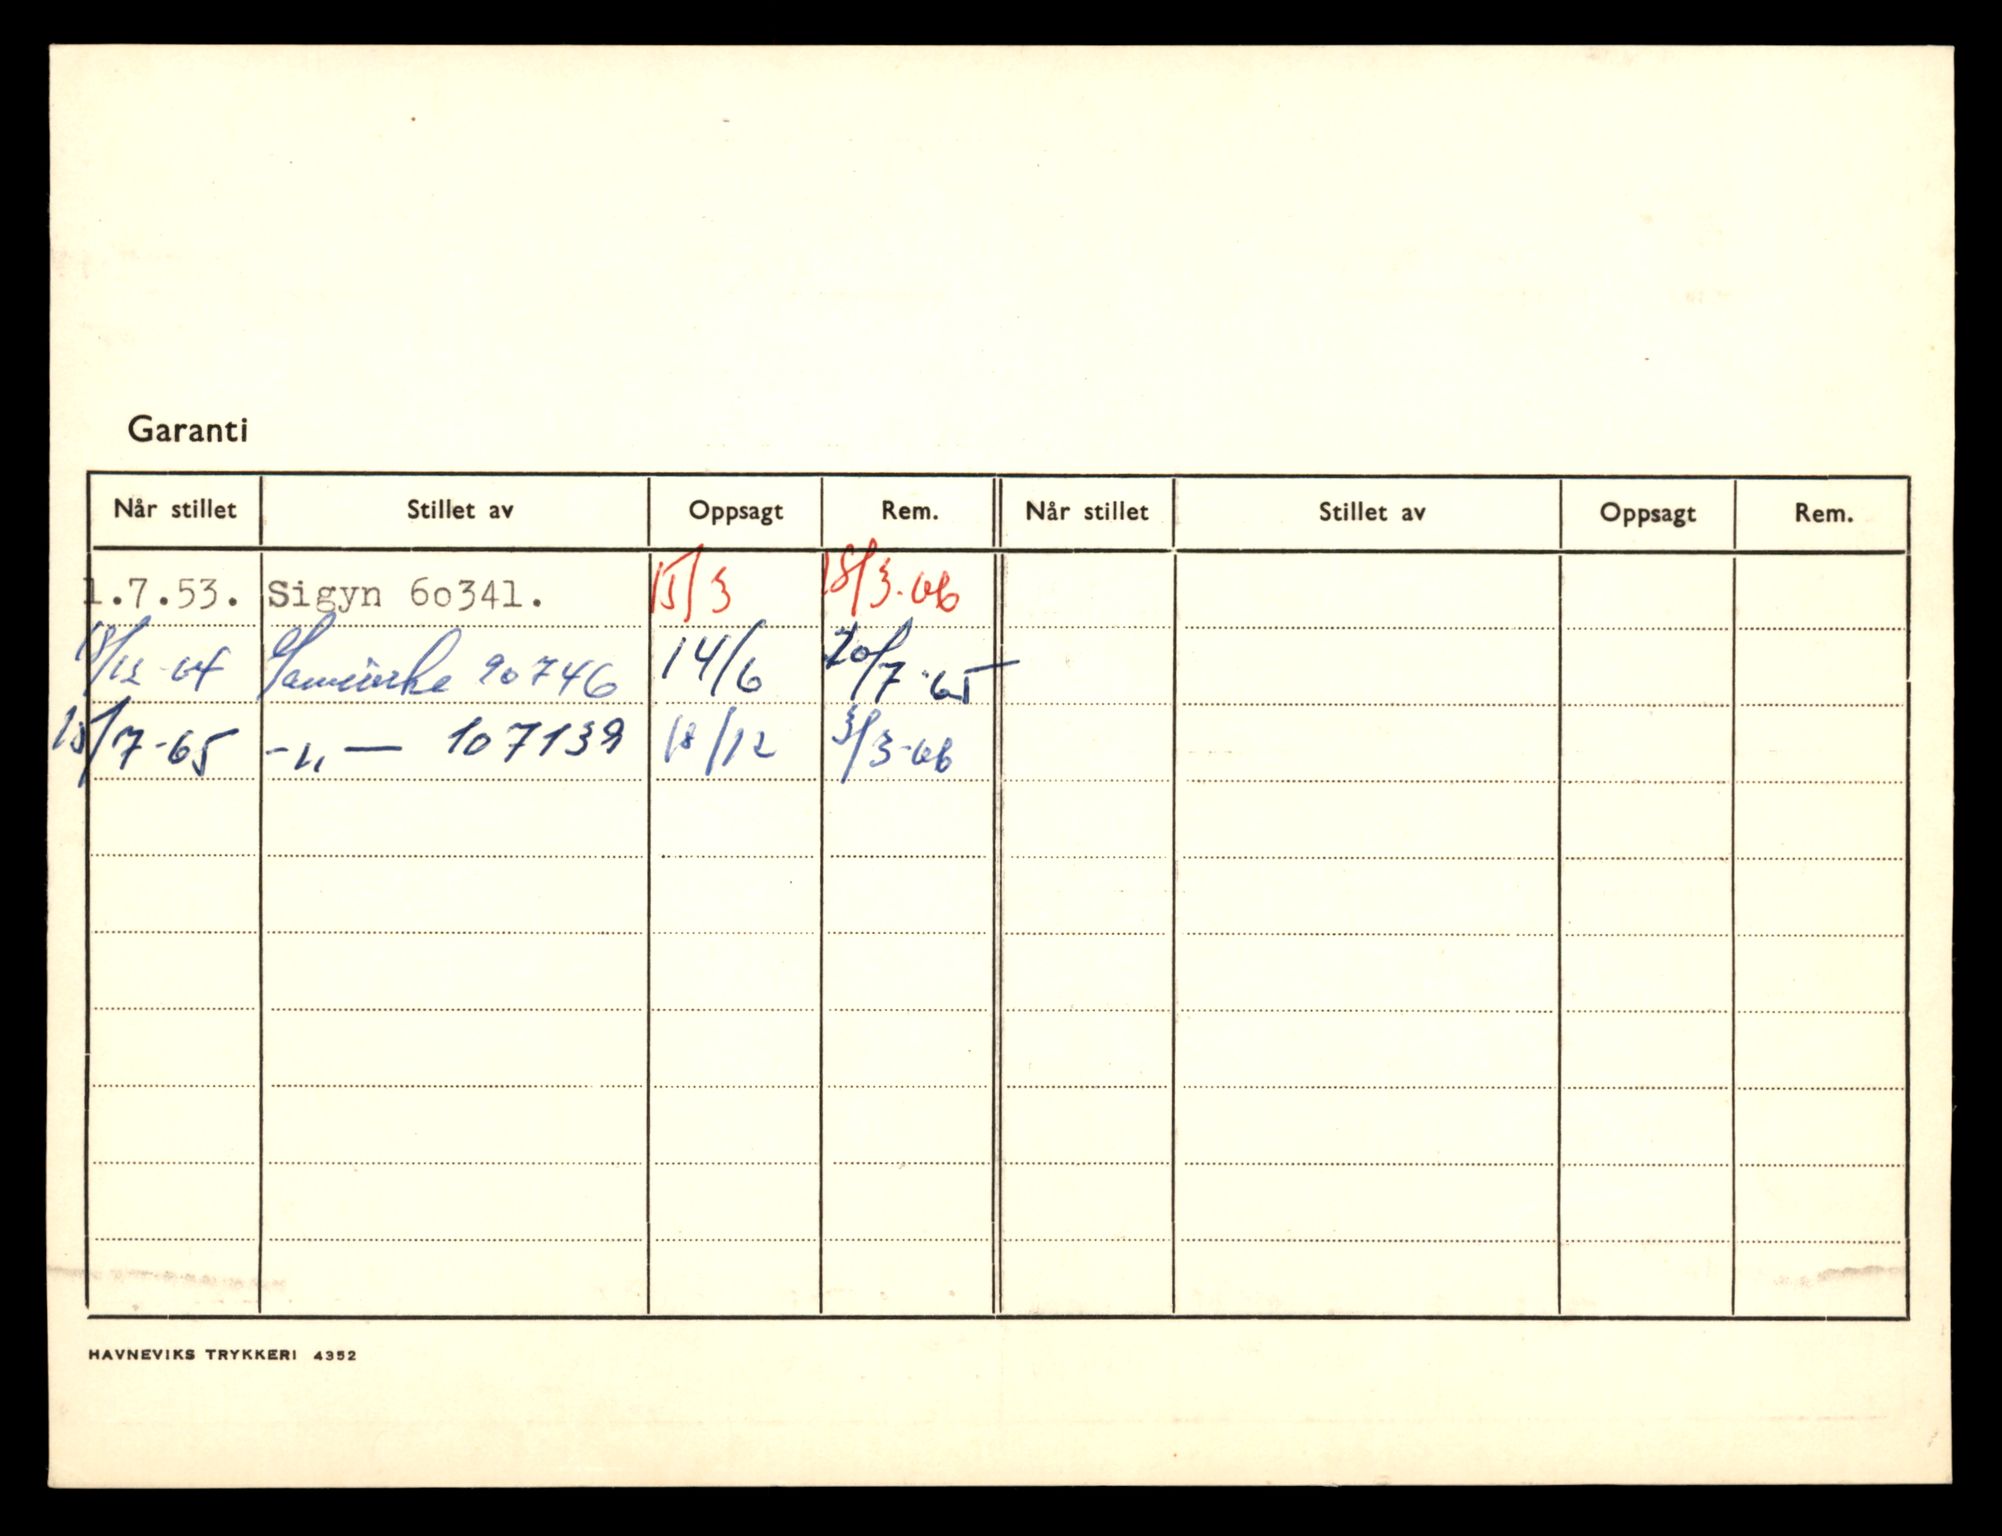 Garanti
Når stillet Stillet av Oppsagt Rem. Når stillet Stillet av Oppsagt Rem.
1.7.53. Sigyn 60341. 15/3 18/3-66
18/12-64 Samvirke 90746 14/6 20/7-65
15/7-65 -"- 107139 18/12 3/3-66
HAVNEVIKS TRYKKERI 4352